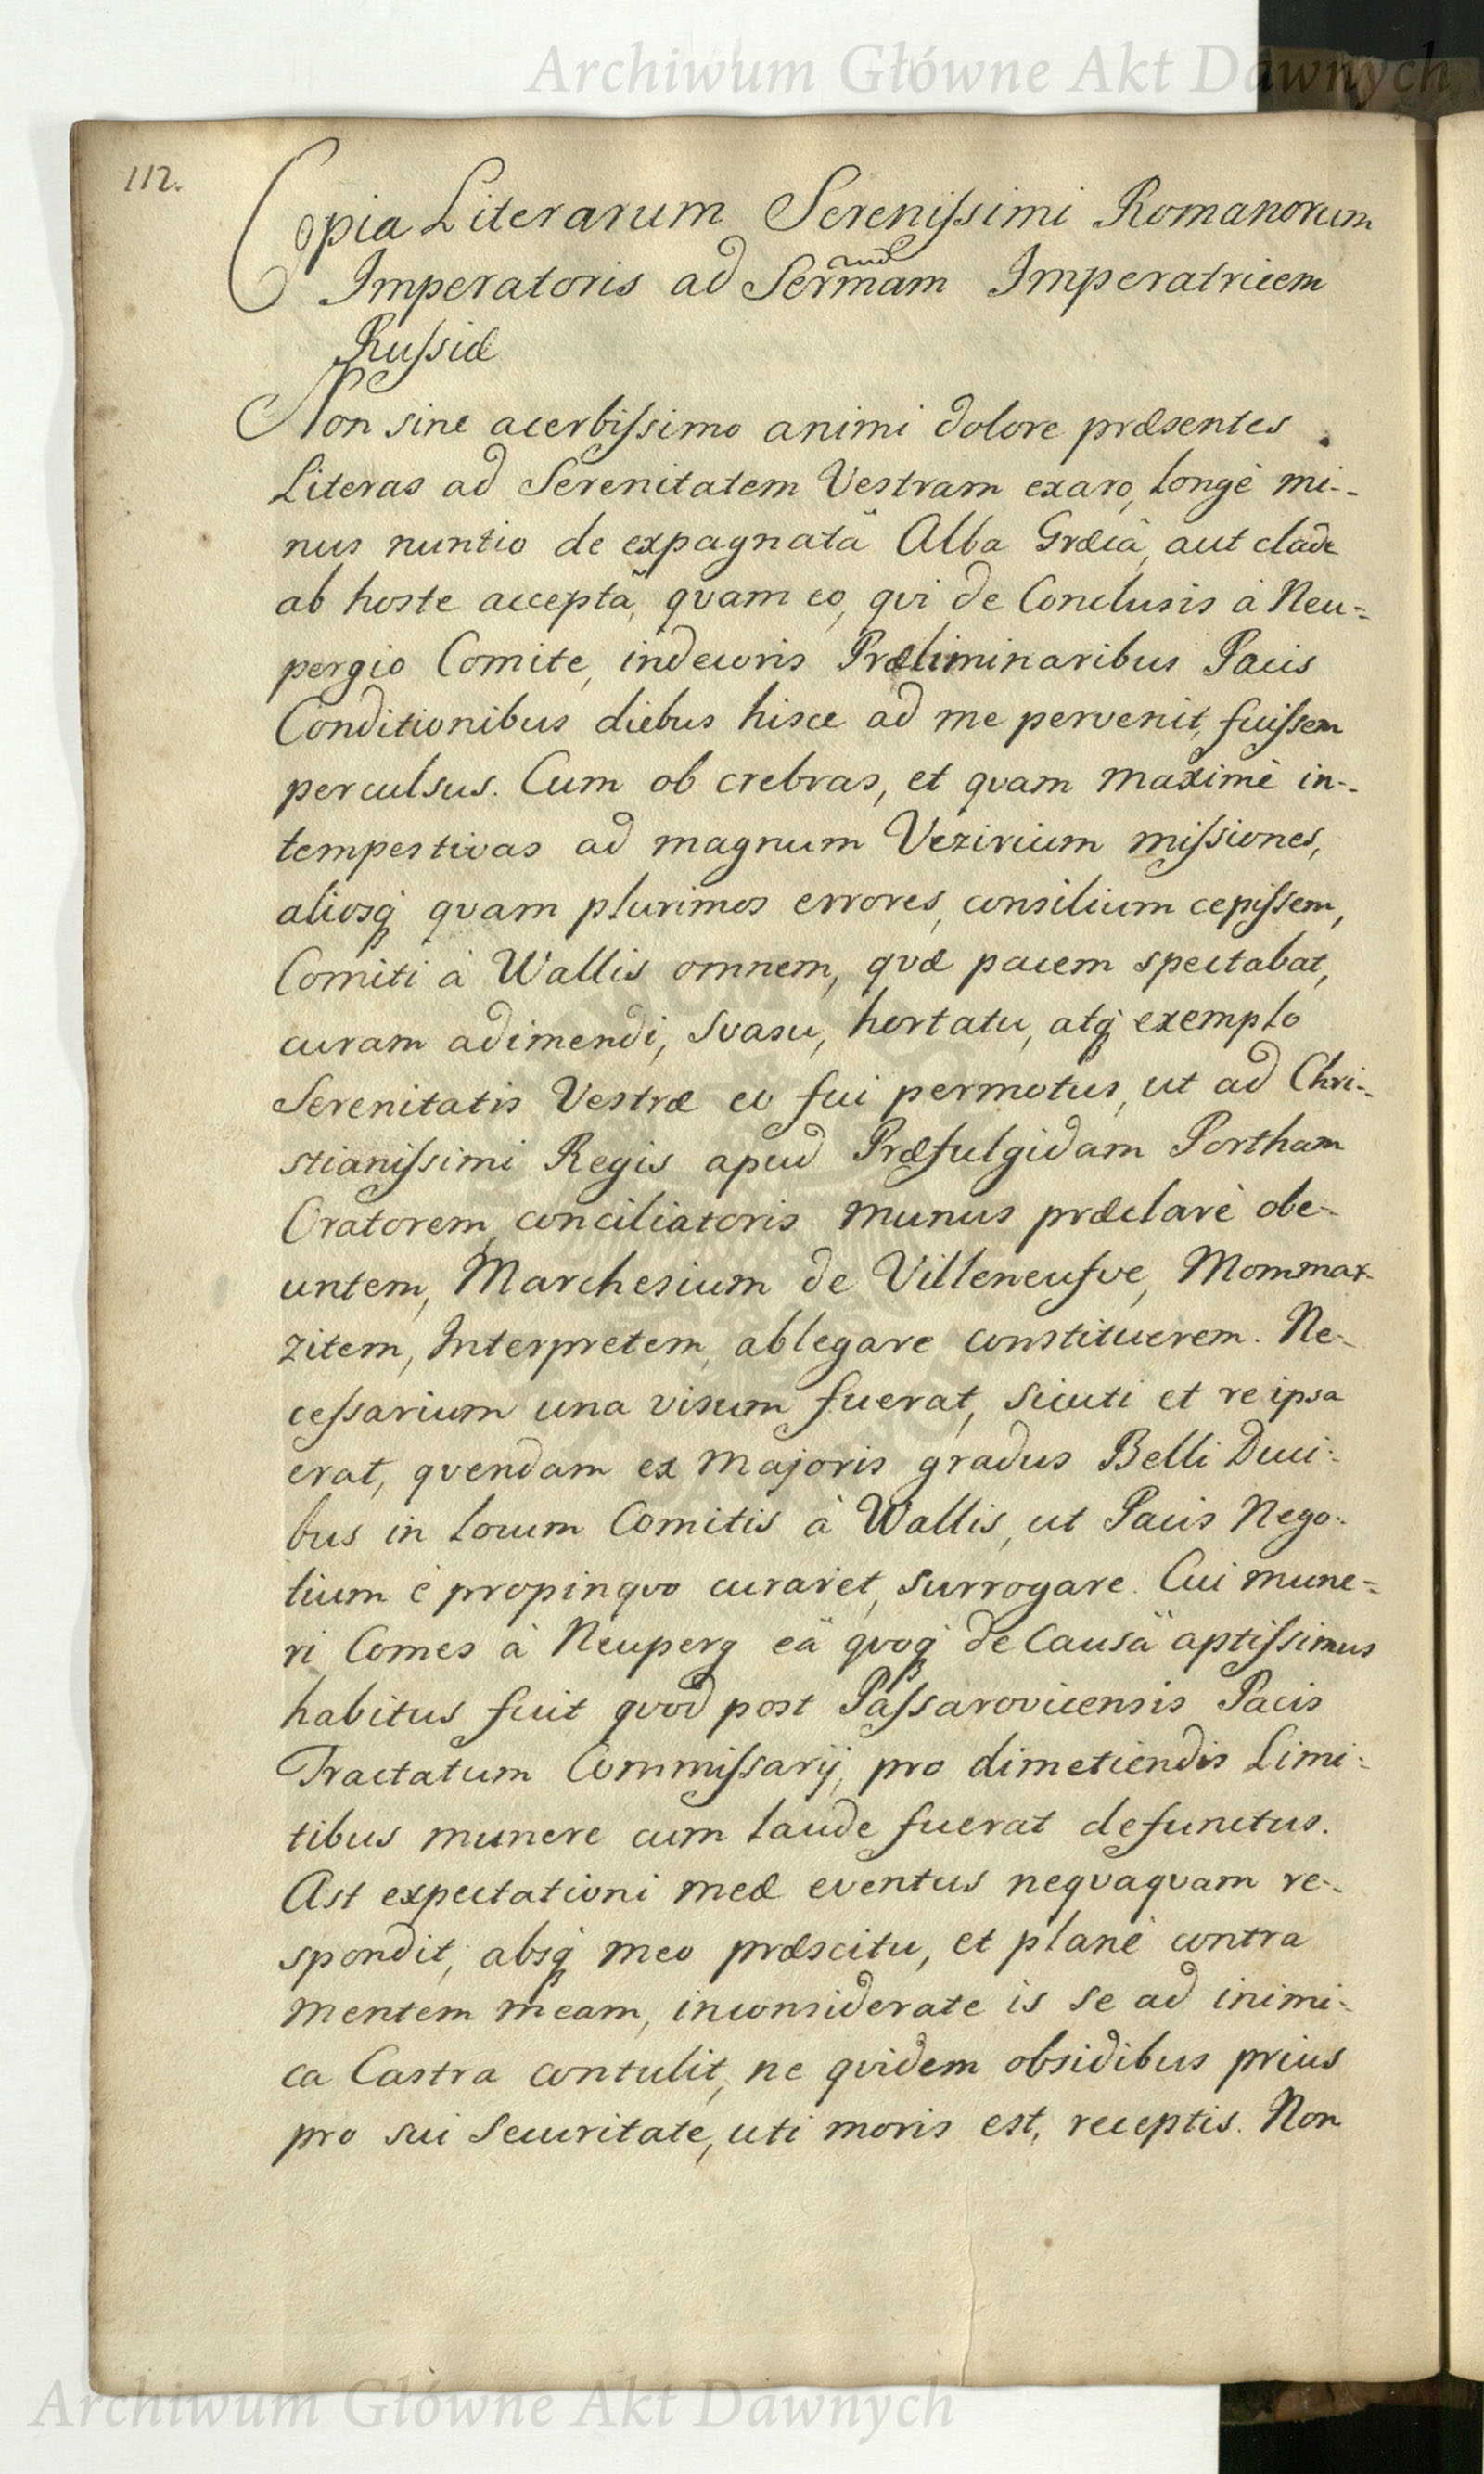 Archiwum Główne Akt Dawnych
112.
Copia Literarum Serenissimi Romanorum
Imperatoris ad Sermam Imperatricem
Russiæ
Non sine acerbissimo animi dolore præsentes
Literas ad Serenitatem Vestram exaro, longè mi-
nus nuntio de expagnatâ Alba Græcâ, aut clade
ab hoste acceptâ, quam eo, qui de Conclusis à Neu=
pergio Comite, indecoris Præliminaribus Pacis
Conditionibus diebus hisce ad me pervenit, fuissem
perculsus. Cum ob crebras, et quam maximè in-
tempestivas ad magnum Vezirium missiones,
aliosq quam plurimos errores, consilium cepissem,
Comiti à Wallis omnem, quæ pacem spectabat,
curam adimendi, svasu, hortatu, atq exemplo
Serenitatis Vestræ eo fui permotus, ut ad Chri-
stianissimi Regis apud Præfulgidam Portham
Oratorem, conciliatoris munus præclarè obe-
untem, Marchesium de Villeneufve, Mommar-
zitem, Interpretem, ablegare constituerem. Ne-
cessarium una visum fuerat, sicuti et re ipsa
erat, quendam ex majoris gradus Belli Duci-
bus in locum Comitis à Wallis, ut Pacis Nego-
tium è propinquo curaret, surrogare. Cui mune=
ri Comes à Neuperg eâ quoq de Causâ aptissimus
habitus fuit quod post Passarovicensis Pacis
Tractatum Commissarij, pro dimetiendis Limi-
tibus munere cum laude fuerat defunctus.
Ast expectationi meæ eventus nequaquam re-
spondit, absq meo præscitu, et planè contra
mentem meam, inconsiderate is se ad inimi-
ca Castra contulit, ne quidem obsidibus prius
pro sui Securitate, uti moris est, receptis. Non
Archiwum Główne Akt Dawnych